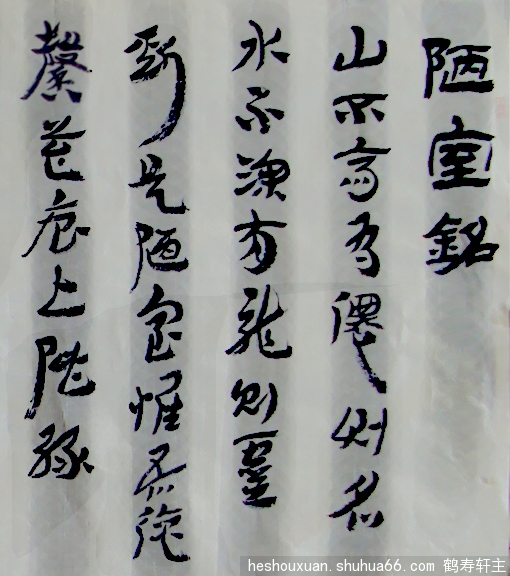 陋室銘
山不高有僊则名
水不深有龙则靈
斯是陋室惟吾德
馨苔痕上階緑
heshouxuan.shuhua66.com 鹤寿轩主